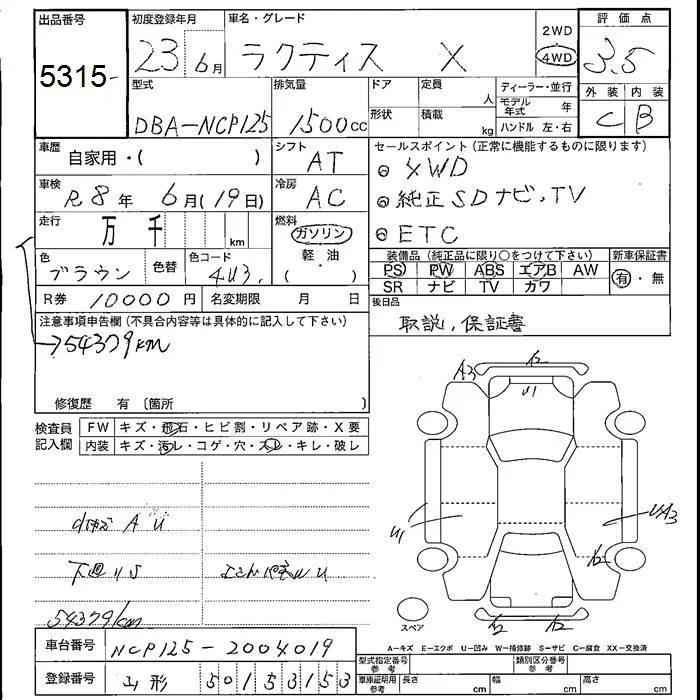 出品番号 初度登録年月 車名・グレード 2WD 評価点
5315- 23年6月 ラクティス X 4WD 3.5
型式 排気量 ドア 定員 人 ディーラー・並行 外装 内装
DBA-NCP125 1500cc 形状 積載 kg モデル年式 年 C B
ハンドル 左・右
車歴 自家用・( ) シフト AT セールスポイント(正常に機能するものに限ります)
車検 R.8年 6月(19日) 冷房 AC ◎ 4WD
◎ 純正SDナビ、TV
走行 万 千 km 燃料 ガソリン ◎ ETC
色 ブラウン 色替 色コード 4U3. 軽・油 ( )
装備品(純正品に限り○をつけて下さい) 新車保証書
PS PW ABS エアB AW 有・無
SR ナビ TV カワ
R券 10000円 名変期限 月 日 後日品
取説、保証書
注意事項申告欄(不具合内容等は具体的に記入して下さい)
→54379km
修復歴 有 〔箇所 〕
検査員記入欄 FW キズ・飛石・ヒビ割・リペア跡・X要
内装 キズ・汚レ・コゲ・穴・スレ・キレ・破レ
A3
U1
U1
UA3
A U
54379km
スペア
A=キズ E=エクボ U=凹み W=補修跡 S=サビ C=腐食 XX=交換済
車台番号 NCP125-2004019
型式指定番号 参考 類別区分番号 参考
登録番号 山形 501 5 3153
車庫証明用 参考 長さ cm 幅 cm 高さ cm